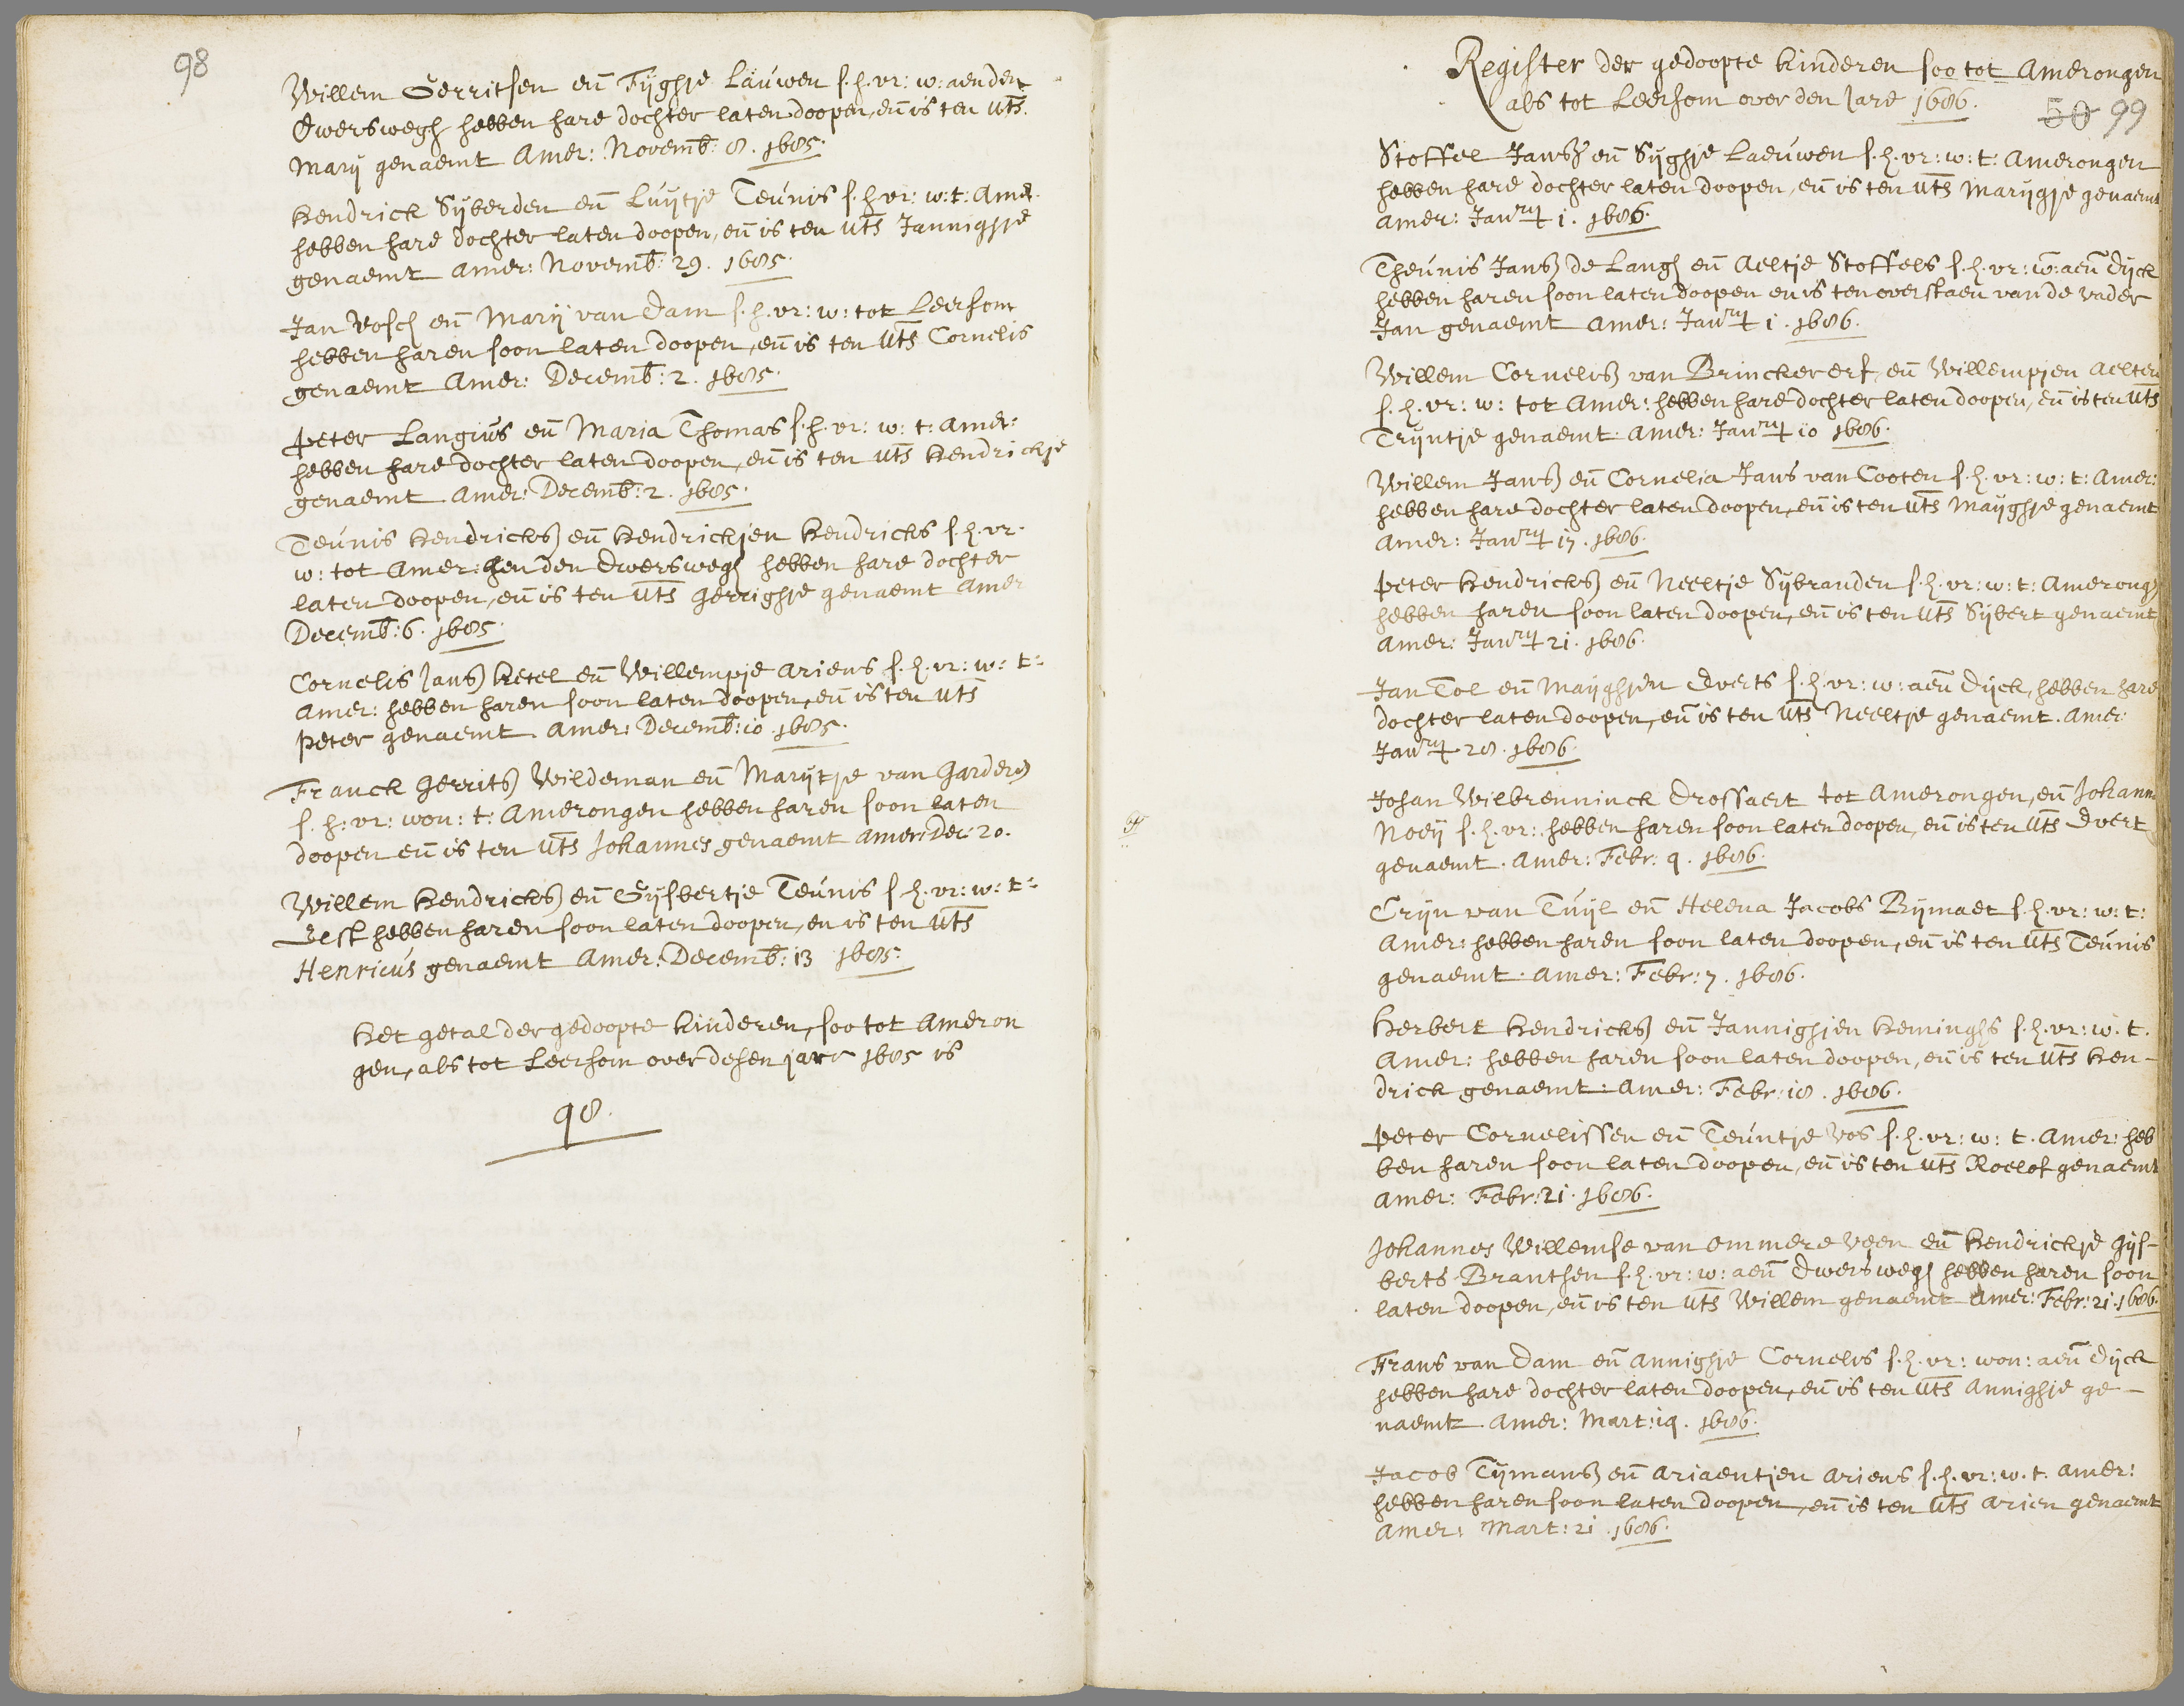 98
Willem Gerritsen eñ Fijghje Lauwen s.h.vr: w: aen den
Dwerswegh hebben hare dochter laten doopen, eñ is ten uts.
Marij genaemt Amer: Novemb: 8. 1685.
Hendrick Sijberden eñ Luijtje Teunis s.h.vr: w: t: Amer
hebben hare dochter laten doopen, eñ is ten uts Jannighje
genaemt Amer: Novemb: 29. 1685.
Jan Vosch eñ Marij van Dam s.h.vr: w: tot Leersom
hebben haren soon laten doopen, eñ is ten uts Cornelis
genaemt Amer: Decemb: 2. 1685.
Peter Langius eñ Maria Thomas s.h.vr: w: t: Amer:
hebben hare dochter laten doopen, eñ is ten uts Hendrickje
genaemt Amer: Decemb: 2. 1685.
Teunis Hendricks eñ Hendrickjen Hendricks s.h.vr.
w: tot Amer: aen den Dwerswegh hebben hare dochter
laten doopen, eñ is ten uts Gerrighje genaemt Amer
Decemb: 6. 1685.
Cornelis Jans Ketel eñ Willempje Ariens s.h.vr: w: t:
Amer: hebben haren soon laten doopen, eñ is ten uts
Peter genaemt Amer: Decemb: 10. 1685.
Franck Gerrits Wildeman eñ Marijtje van Garderen
s.h: vr: won: t: Amerongen hebben haren soon laten
doopen eñ is ten uts Johannes genaemt Amer: Dec: 20.
Willem Hendricks eñ Gijsbertje Teunis s.h.vr: w: t:
Elst hebben haren soon laten doopen, en is ten uts
Henricus genaemt Amer: Decemb: 13 1685.
Het getal der gedoopte kinderen, soo tot Ameron
gen, als tot Leersom over desen jare 1685 is
98.
Register der gedoopte kinderen soo tot Amerongen
als tot Leersom over den Jare 1686.
50 99
Stoffel Jans eñ Sijghje Laeuwen s.h.vr: w: t: Amerongen
hebben hare dochter laten doopen, eñ is ten uts Marijgje genaemt
Amer: Janry 1. 1686.
Theunis Jans de Langh eñ Aeltje Stoffels s.h.vr: w: aeñ Dijck
hebben haren soon laten doopen en is ten overstaen van de vader
Jan genaemt Amer: Janry 1. 1686.
Willem Cornelis van Brinckererf, eñ Willempjen Aelten
s.h.vr: w: tot Amer: hebben hare dochter laten doopen, eñ is ten uts
Trijntje genaemt. Amer: Janry 10 1686.
Willem Jans eñ Cornelia Jans van Cooten s.h.vr: w: t: Amer:
hebben hare dochter laten doopen, eñ is ten uts Maijghje genaemt
Amer: Janry 17. 1686.
Peter Hendricks eñ Neeltje Sijbranden s.h.vr: w: t: Amerong
hebben haren soon laten doopen, eñ is ten uts Sijbert genaemt
Amer: Janry 21. 1686.
Jan Tol eñ Maijghjen Everts s.h.vr: w: aeñ Dijck, hebben hare
dochter laten doopen, eñ is ten uts Neeltje genaemt. Amer:
Janry 28. 1686.
Johan Wilbrenninck Drossaert tot Amerongen, eñ Johann
Noeij s.h.vr: hebben haren soon laten doopen, eñ is ten uts Evert
genaemt. Amer: Febr: 9. 1686.
Crijn van Tuijl eñ Helena Jacobs Bijmaet s.h.vr: w: t:
Amer: hebben haren soon laten doopen, eñ is ten uts Teunis
genaemt. Amer: Febr: 7. 1686.
Herbert Hendricks eñ Jannighjen Heminghs s.h.vr: w. t.
Amer: hebben haren soon laten doopen, eñ is ten uts Hen-
drick genaemt: Amer: Febr: 18. 1686.
Peter Cornelissen eñ Teuntje Vos s.h.vr: w: t. Amer: heb
ben haren soon laten doopen, eñ is ten uts Roelof genaemt
Amer: Febr: 21. 1686.
Johannes Willemse van Ommere Veen eñ Hendrickje Gijs-
berts Branthen s.h.vr: w: aeñ Dwerswegh hebben haren soon
laten doopen, eñ is ten uts Willem genaemt Amer: Febr: 21. 1686.
Frans van Dam eñ Annighje Cornelis s.h.vr: won: aeñ Dijck
hebben hare dochter laten doopen, eñ is ten uts Annighje ge-
naemt Amer: Mart: 19. 1686.
Jacob Tijmans eñ Ariaentjen Ariens s.h.vr: w. t. Amer:
hebben haren soon laten doopen, eñ is ten uts Arien genaemt
Amer: Mart: 21. 1686.